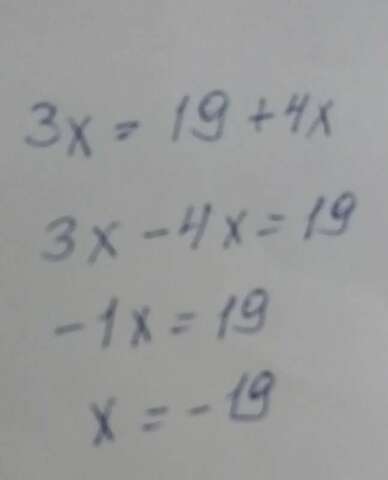 3x = 19 + 4x
3x - 4x = 19
-1x = 19
x = -19